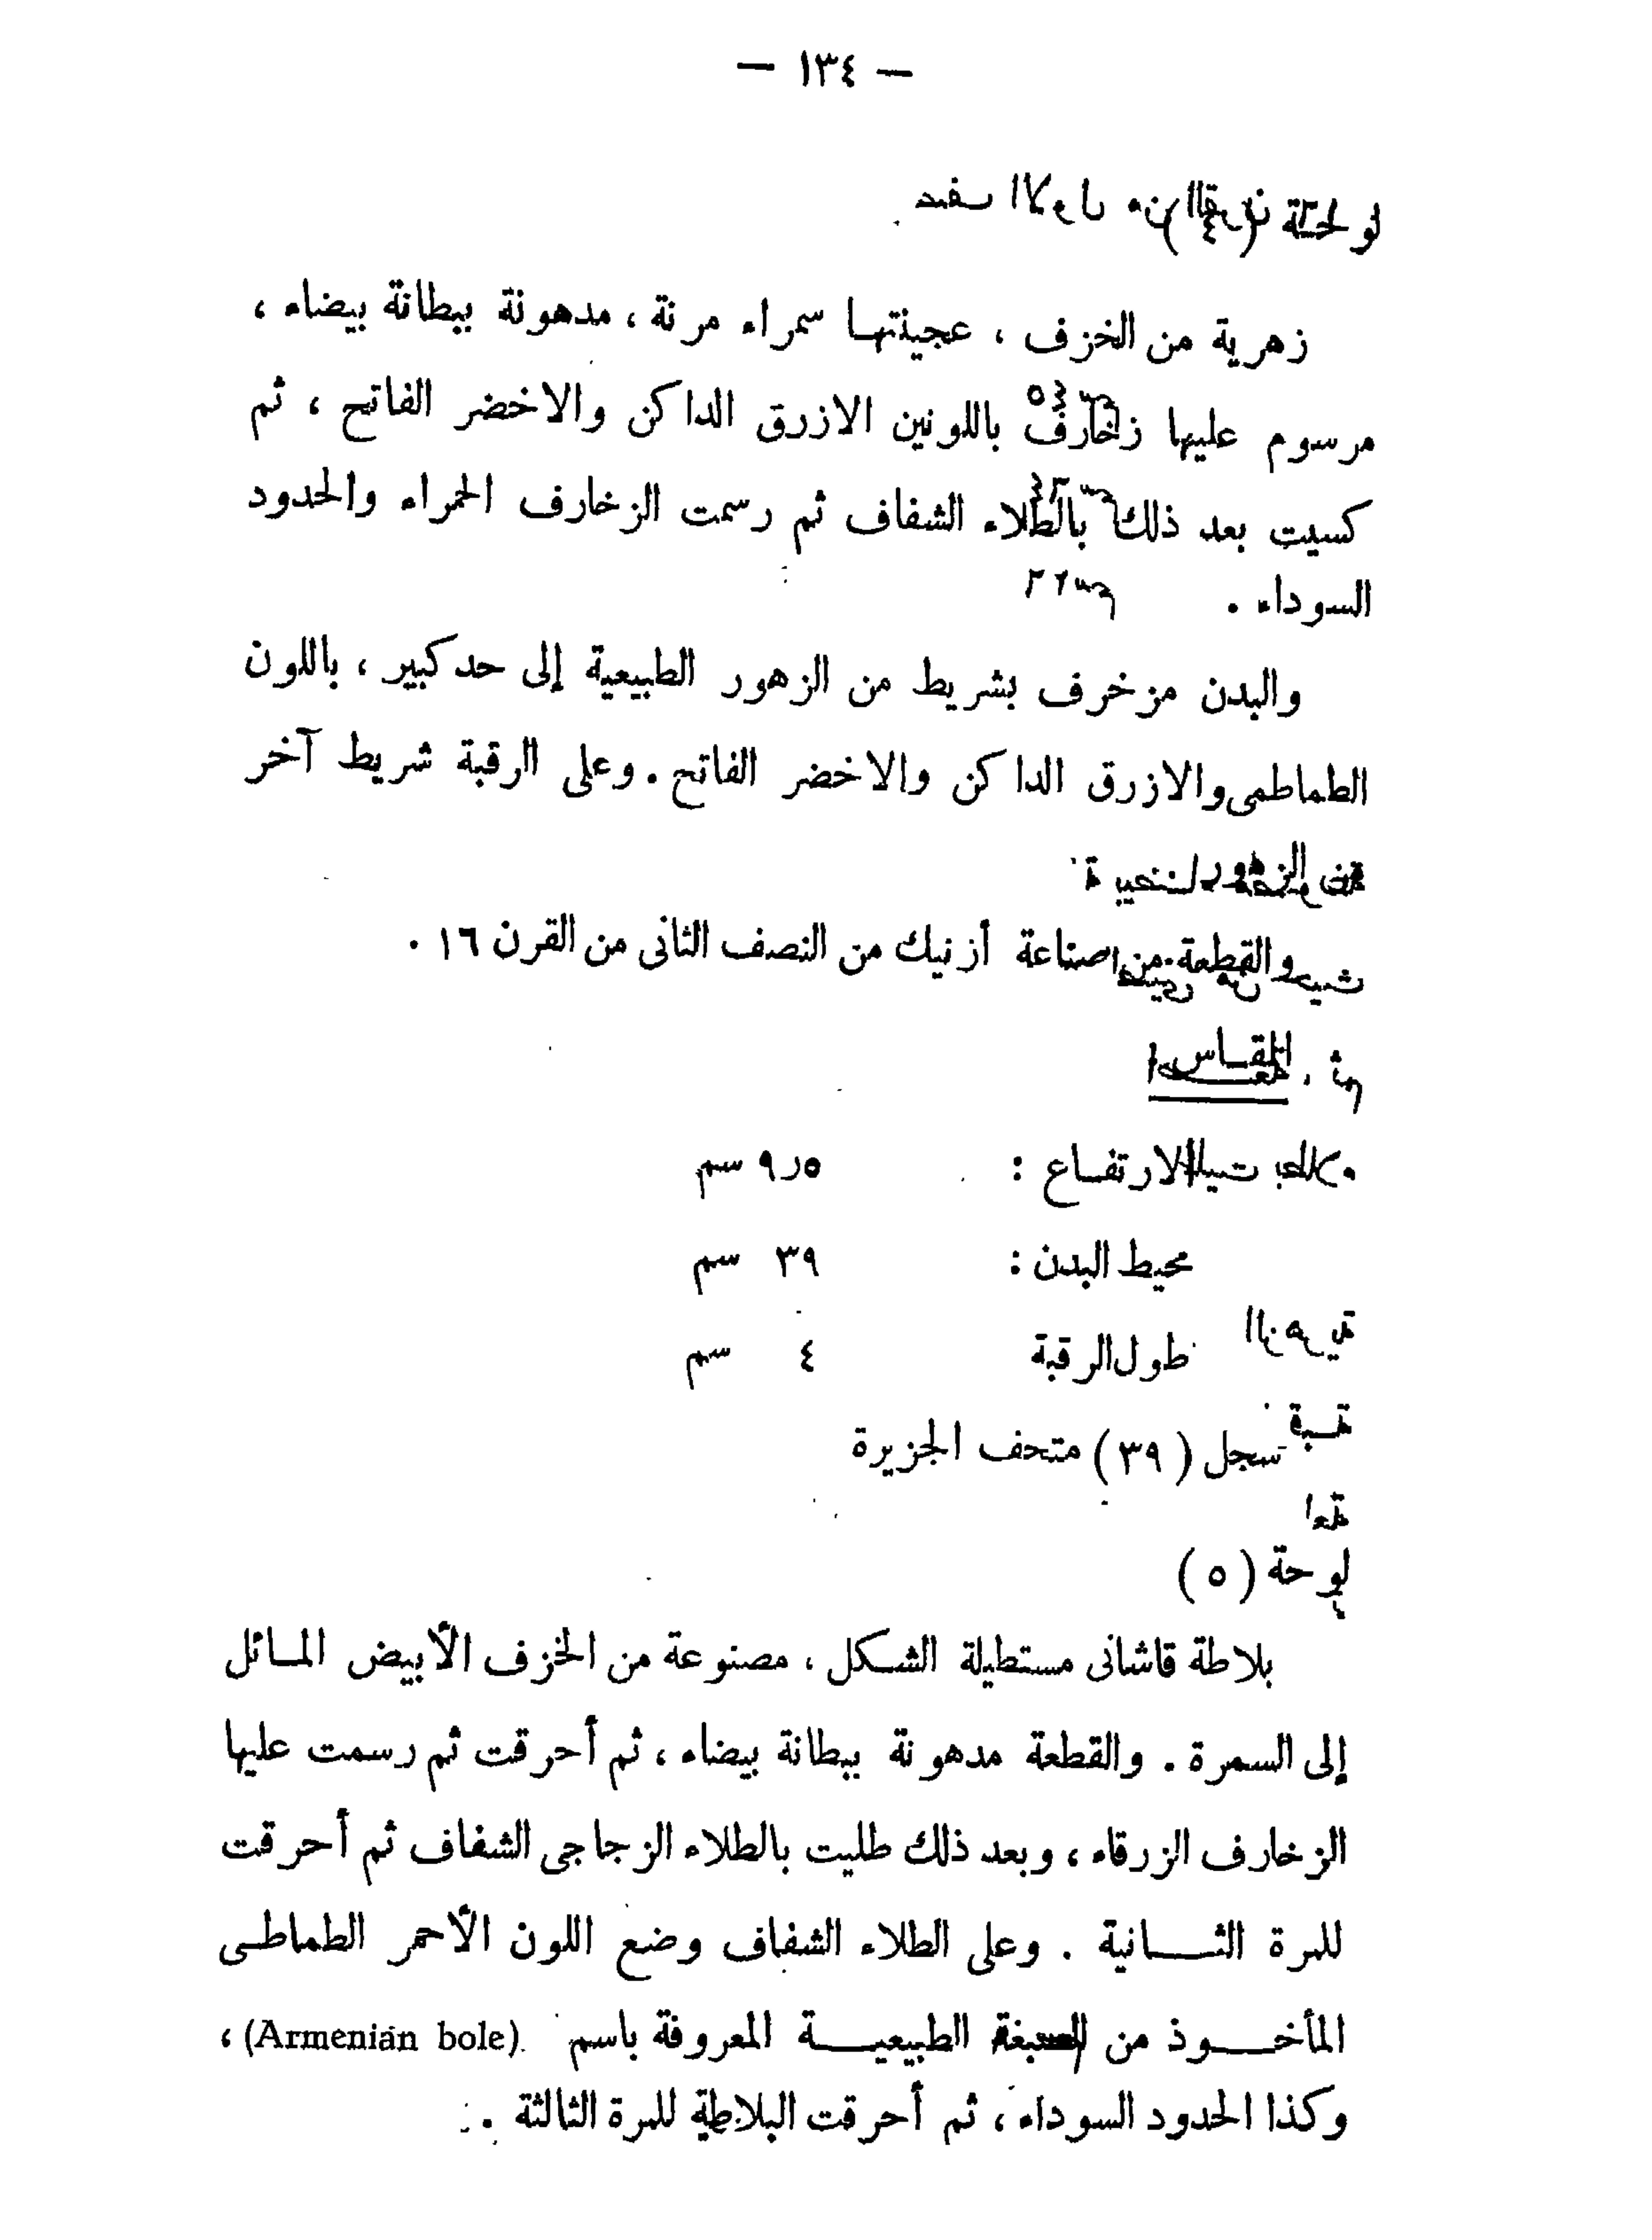 — ١٣٤ —
لوحة (٤)
زهرية من الخزف ، عجينتها سمراء مرنة ، مدهونة ببطانة بيضاء ،
مرسوم عليها زخارف باللونين الازرق الداكن والاخضر الفاتح ، ثم
كسيت بعد ذلك بالطلاء الشفاف ثم رسمت الزخارف الحمراء والحدود
السوداء .
والبدن مزخرف بشريط من الزهور الطبيعية إلى حد كبير ، باللون
الطماطمى والازرق الداكن والاخضر الفاتح . وعلى الرقبة شريط آخر
من الزهور
والقطعة من صناعة أزنيك من النصف الثانى من القرن ١٦ .
المقاس
الارتفاع : ٩٫٥ سم
محيط البدن : ٣٩ سم
طول الرقبة ٤ سم
سجل ( ٣٩ ) متحف الجزيرة
لوحة ( ٥ )
بلاطة قاشانى مستطيلة الشكل ، مصنوعة من الخزف الأبيض المائل
إلى السمرة . والقطعة مدهونة ببطانة بيضاء ، ثم أحرقت ثم رسمت عليها
الزخارف الزرقاء ، وبعد ذلك طليت بالطلاء الزجاجى الشفاف ثم أحرقت
للمرة الثانية . وعلى الطلاء الشفاف وضع اللون الأحمر الطماطى
المأخوذ من الصبغة الطبيعية المعروفة باسم (Armenian bole) ،
وكذا الحدود السوداء ، ثم أحرقت البلاطة للمرة الثالثة .